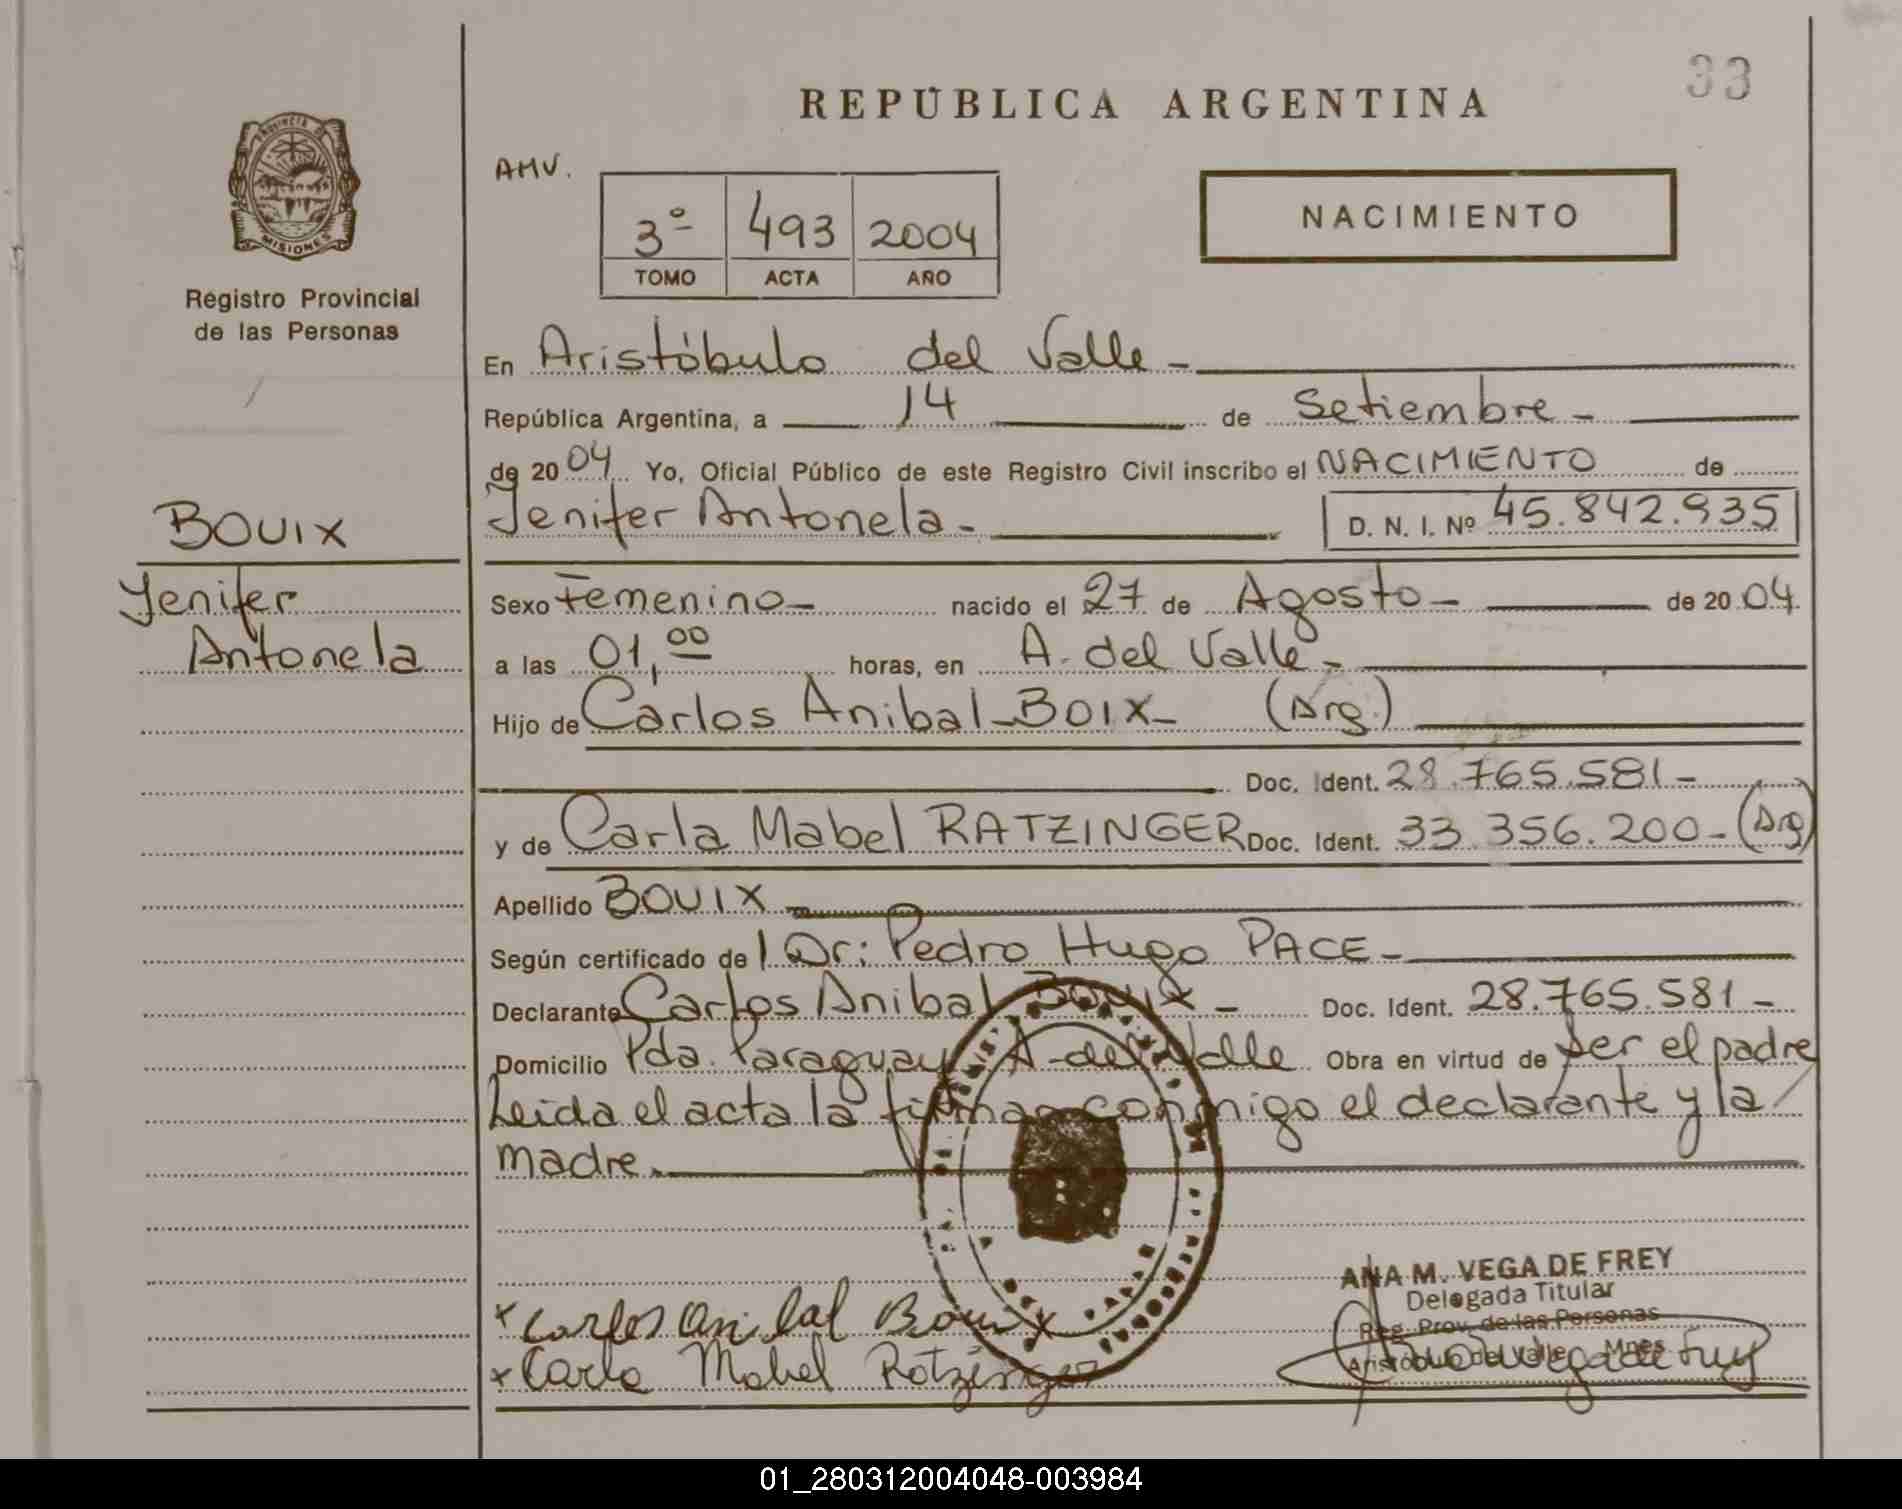 33
REPÚBLICA ARGENTINA
PROVINCIA DE
MISIONES
Registro Provincial
de las Personas
AMV.
3º 493 2004
TOMO ACTA AÑO
NACIMIENTO
En Aristóbulo del Valle -
República Argentina, a 14 de Setiembre -
de 2004 Yo, Oficial Público de este Registro Civil inscribo el NACIMIENTO de
BOUIX
Jenifer Antonela - D. N. I. Nº 45.842.935
Jenifer
Antonela
Sexo Femenino - nacido el 27 de Agosto - de 2004.
a las 01,00 horas, en A. del Valle -
Hijo de Carlos Anibal - BOIX - (Arg.)
Doc. Ident. 28.765.581 -
y de Carla Mabel RATZINGER Doc. Ident. 33.356.200 - (Arg)
Apellido BOUIX
Según certificado del Dr: Pedro Hugo PACE -
Declarante Carlos Anibal BOUIX - Doc. Ident. 28.765.581 -
Domicilio Pda. Paraguay A. del Valle Obra en virtud de ser el padre
Leida el acta la firman conmigo el declarante y la
madre.
ANA M. VEGA DE FREY
Delegada Titular
Reg. Prov. de las Personas
Aristóbulo del Valle Mnes.
x Carlos Anibal Bouix
x Carla Mabel Ratzinger
01_280312004048-003984